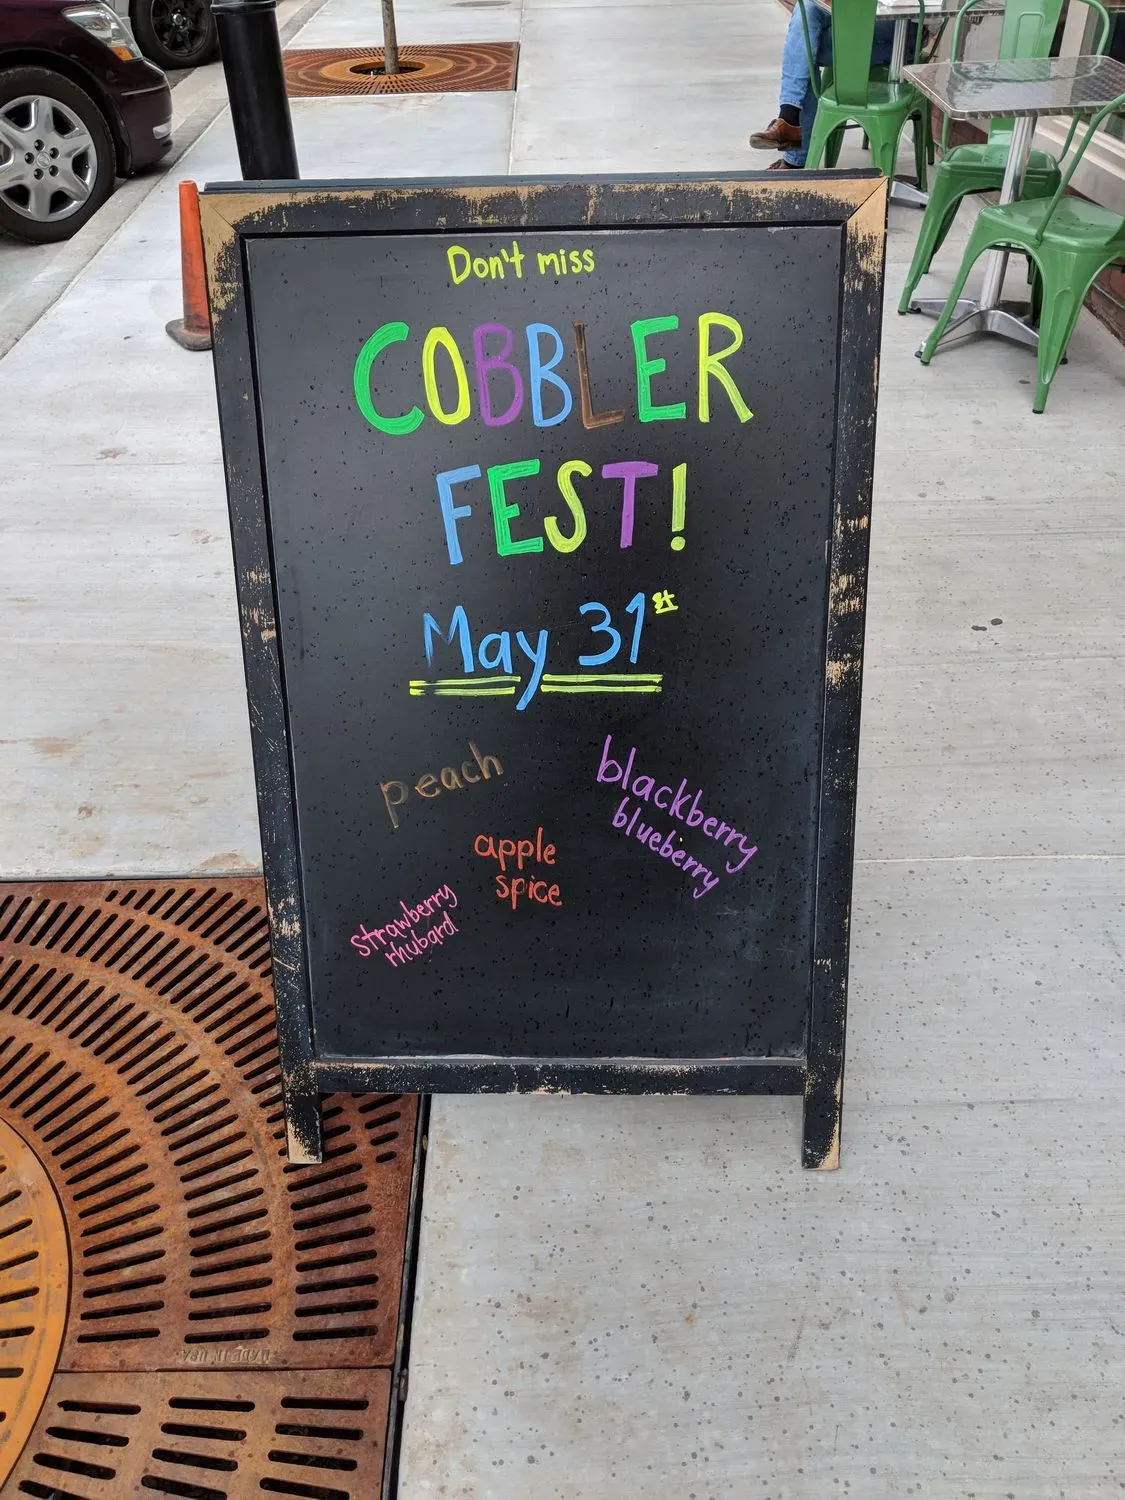 Don't miss
COBBLER
FEST!
May 31st
peach
blackberry
blueberry
apple
spice
strawberry
rhubard
MADE IN USA